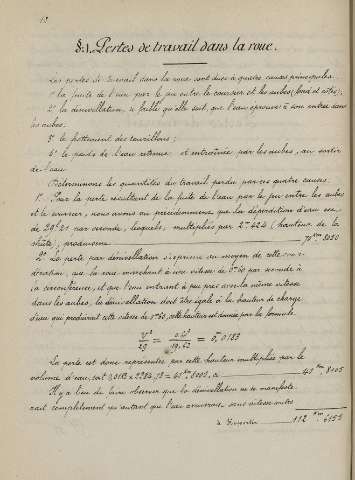 §:1. Pertes de travail dans la roue.
Les pertes de travail dans la roue sont dues à quatre causes principales:
1° la fuite de l'eau par le jeu entre le coursier et les aubes (fond et côtés);
2° la dénivellation, si faible qu'elle soit, que l'eau éprouve à son entrée dans
les aubes;
3° le frottement des tourillons;
4° le poids de l'eau retenue et entraînée par les aubes, au sortir
de l'eau.
Déterminons les quantités du travail perdu par ces quatre causes.
1° Pour la perte résultant de la fuite de l'eau par le jeu entre les aubes
et le coursier, nous avons vu précédemment que la déperdition d'eau est
de par seconde, lesquels, multipliés par (hauteur de la
chute), produisent
2° La perte par dénivellation s'exprime au moyen de cette
que la roue marchant à une vitesse de 0m60 par seconde à
la circonférence, et que l'eau entrant à peu près avec la même vitesse
dans les aubes, la dénivellation doit être égale à la hauteur de charge
d'eau qui produirait cette vitesse de 0m60, cette hauteur est donnée par la formule
V²/2g = 0.6²/19,62 = 0m,0183
La perte est donc représentée par cette hauteur multipliée par le
volume d'eau, soit
Il y a lieu de faire observer que la dénivellation ne se manifeste-
rait complètement qu'autant que l'eau arriverait sans vitesse entre
à Reporter